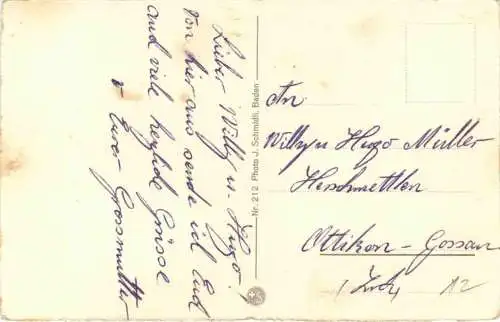 Lieber Willy u. Hugo!
Von hier aus sende ich Euch
auch viele herzliche Grüsse
Eure Grossmutter
Nr. 212 Photo J. Schmidli, Baden
An
Willy u Hugo Müller
Herschmettlen
Ottikon-Gossau
Zrch
12